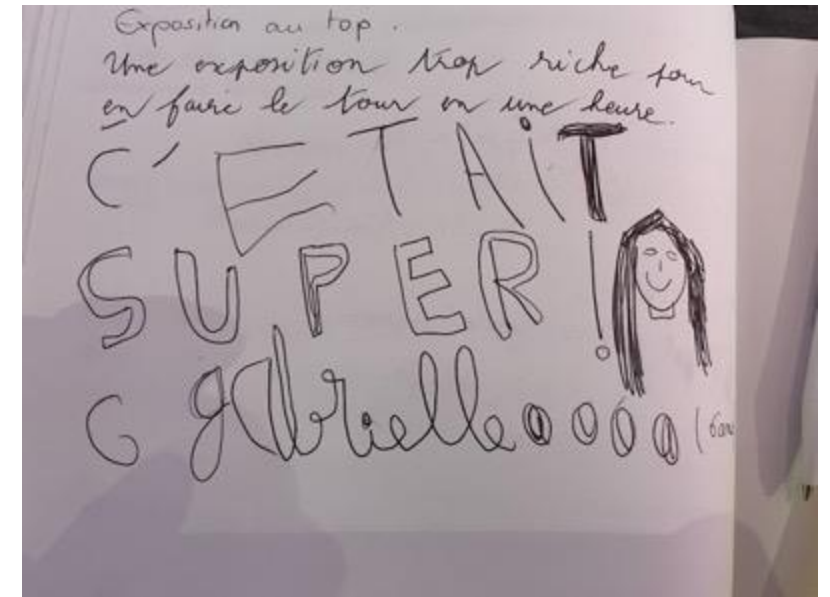 Exposition au top.
Une exposition trop riche pour
en faire le tour en une heure.
C'ETAiT
SUPER!
G gabrielle